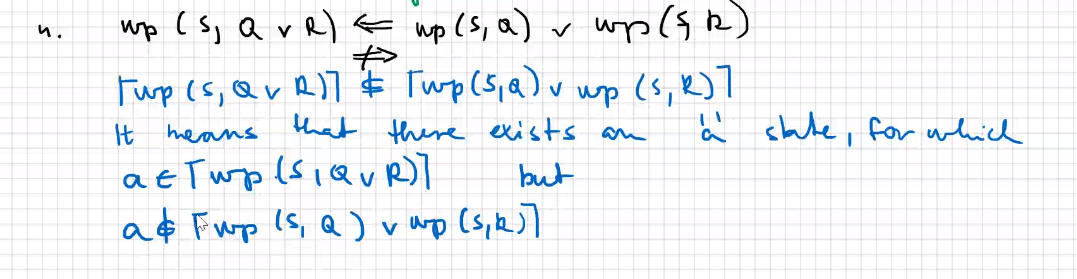 4. wp (S, Q ∨ R) ⇐ wp(S, Q) ∨ wp(S, R)
⇏
⌈wp(S, Q ∨ R)⌉ ⊄ ⌈wp(S, Q) ∨ wp (S, R)⌉
It means that there exists an "a" state, for which
a ∈ ⌈wp (S, Q ∨ R)⌉ but
a ∉ ⌈wp (S, Q) ∨ wp (S, R)⌉